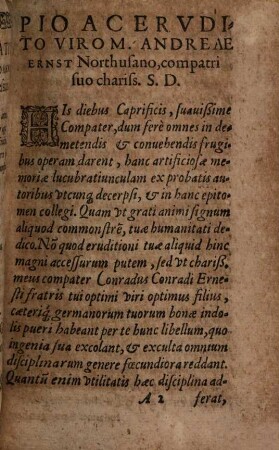 PIO AC ERVDI
TO VIRO M. ANDREAE
ERNST Northusano, compatri
suo chariss. S. D.
HIs diebus Caprificis, suauissime
Compater, dum ferè omnes in de-
metendis & conuehendis frugi
bus operam darent, hanc artificiosæ me
moriæ lucubratiunculam ex probatis au-
toribus vtcunq; decerpsi, & in hanc epito
men collegi. Quam vt grati animi signum
aliquod commonstrē, tuæ humanitati de
dico. Nō quod eruditioni tuæ aliquid hinc
magni accessurum putem, sed vt chariss.
meus compater Conradus Conradi Erne
sti fratris tui optimi viri optimus filius,
cæteriq; germanorum tuorum bonæ indo
lis pueri habeant per te hunc libellum, quo
ingenia sua excolant, & exculta omnium
disciplinarum genere fœcundiora reddant.
Quantū enim vtilitatis hæc disciplina ad-
A 2 ferat,